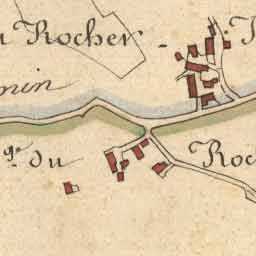 Rocher
min
ge. du Roch